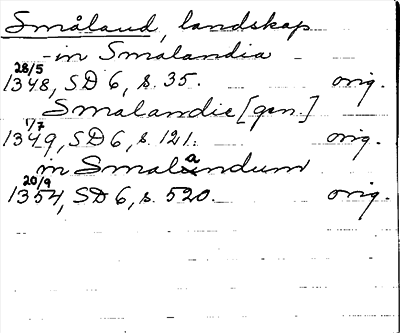 Småland, landskap
in Smalandia
28/5
1348, SD 6, s. 35. orig.
Smalandie [gen.]
1/7
1349, SD 6, s. 121. orig.
in Smalandum
20/9
1354, SD 6, s. 520. orig.